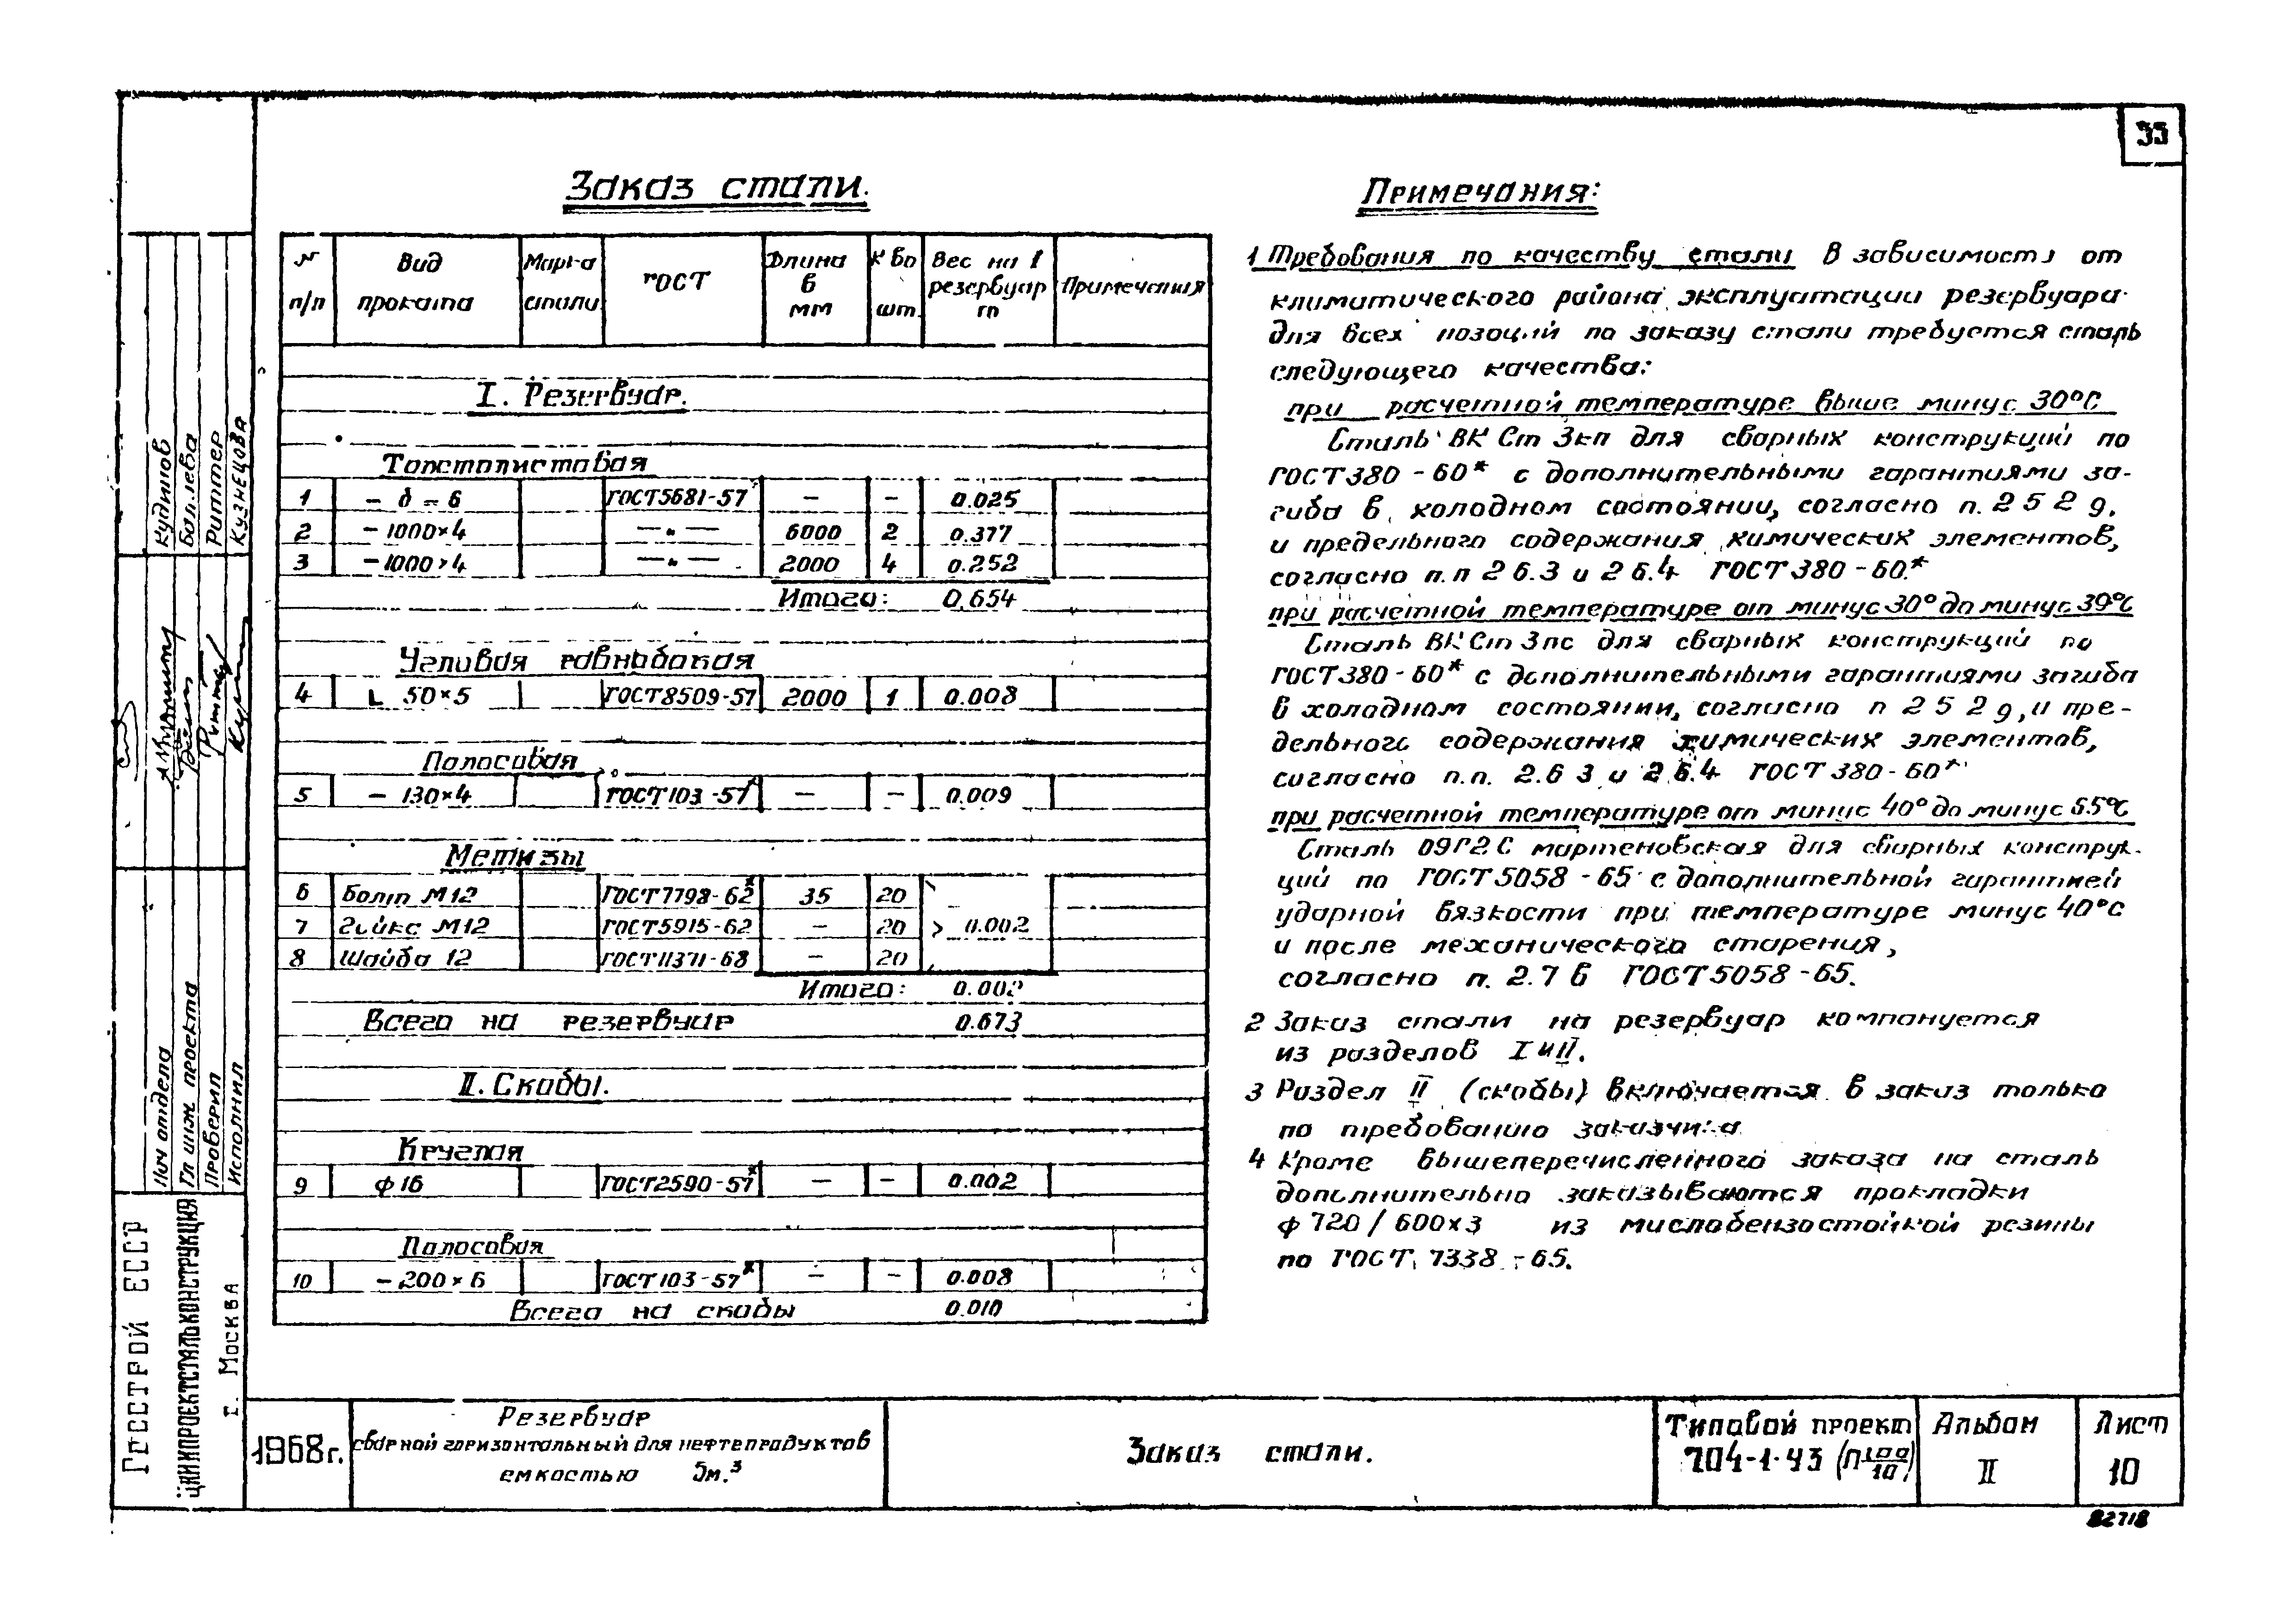 35
Заказ стали.
N п/п | Вид проката | Марка стали | ГОСТ | Длина в мм | К во шт. | Вес на 1 резервуар т | Примечания
I. Резервуар.
Толстолистовая
1 | – δ = 6 | | ГОСТ5681-57 | – | – | 0.025
2 | – 1000×4 | | —„— | 6000 | 2 | 0.377
3 | – 1000×4 | | —„— | 2000 | 4 | 0.252
Итого: 0,654
Угловая равнобокая
4 | L 50×5 | | ГОСТ8509-57 | 2000 | 1 | 0.008
Полосовая
5 | – 130×4 | | ГОСТ103-57* | – | – | 0.009
Метизы
6 | Болт М12 | | ГОСТ7798-62* | 35 | 20
7 | Гайка М12 | | ГОСТ5915-62 | – | 20 | > 0.002
8 | Шайба 12 | | ГОСТ11371-68 | – | 20
Итого: 0.002
Всего на резервуар 0.673
II. Скобы.
Круглая
9 | ф 16 | | ГОСТ2590-57* | – | – | 0.002
Полосовая
10 | – 200×6 | | ГОСТ103-57* | – | – | 0.008
Всего на скобы 0.010
Примечания:
1 Требования по качеству стали В зависимости от
климатического района эксплуатации резервуара
для всех позоций по заказу стали требуется сталь
следующего качества:
при расчетной температуре выше минус 30°С
Сталь ВК Ст 3кп для сварных конструкций по
ГОСТ380-60* с дополнительными гарантиями за-
гиба в холодном состоянии, согласно п. 2 5 2 g,
и предельного содержания химических элементов,
согласно п.п 2 6.3 и 2 6.4 ГОСТ380-60.*
при расчетной температуре от минус 30° до минус 39°С
Сталь ВК Ст 3пс для сварных конструкций по
ГОСТ380-60* с дополнительными гарантиями загиба
в холодном состоянии, согласно п 2 5 2 g, и пре-
дельного содержания химических элементов,
согласно п.п. 2.6 3 и 2.6.4 ГОСТ 380-60*
при расчетной температуре от минус 40° до минус 65°С
Сталь 09Г2С мартеновская для сварных конструк-
ций по ГОСТ5058-65 с дополнительной гарантией
ударной вязкости при температуре минус 40°С
и после механического старения,
согласно п. 2.7 в ГОСТ5058-65.
2 Заказ стали на резервуар компануется
из разделов I и II.
3 Раздел II (скобы) включается в заказ только
по требованию заказчика
4 Кроме вышеперечисленного заказа на сталь
дополнительно заказываются прокладки
ф 720/600×3 из маслобензостойкой резины
по ГОСТ 7338-65.
Кудинов
Баллева
Риттер
Кузнецова
Нач отдела
Гл инж. проекта
Проверил
Исполнил
Госстрой СССР
ЦНИИПРОЕКТСТАЛЬКОНСТРУКЦИЯ
г. Москва
1968г.
Резервуар
сварной горизонтальный для нефтепродуктов
емкостью 5м.³
Заказ стали.
Типовой проект
704-1-43 (П100/10)
Альбом
II
Лист
10
82718